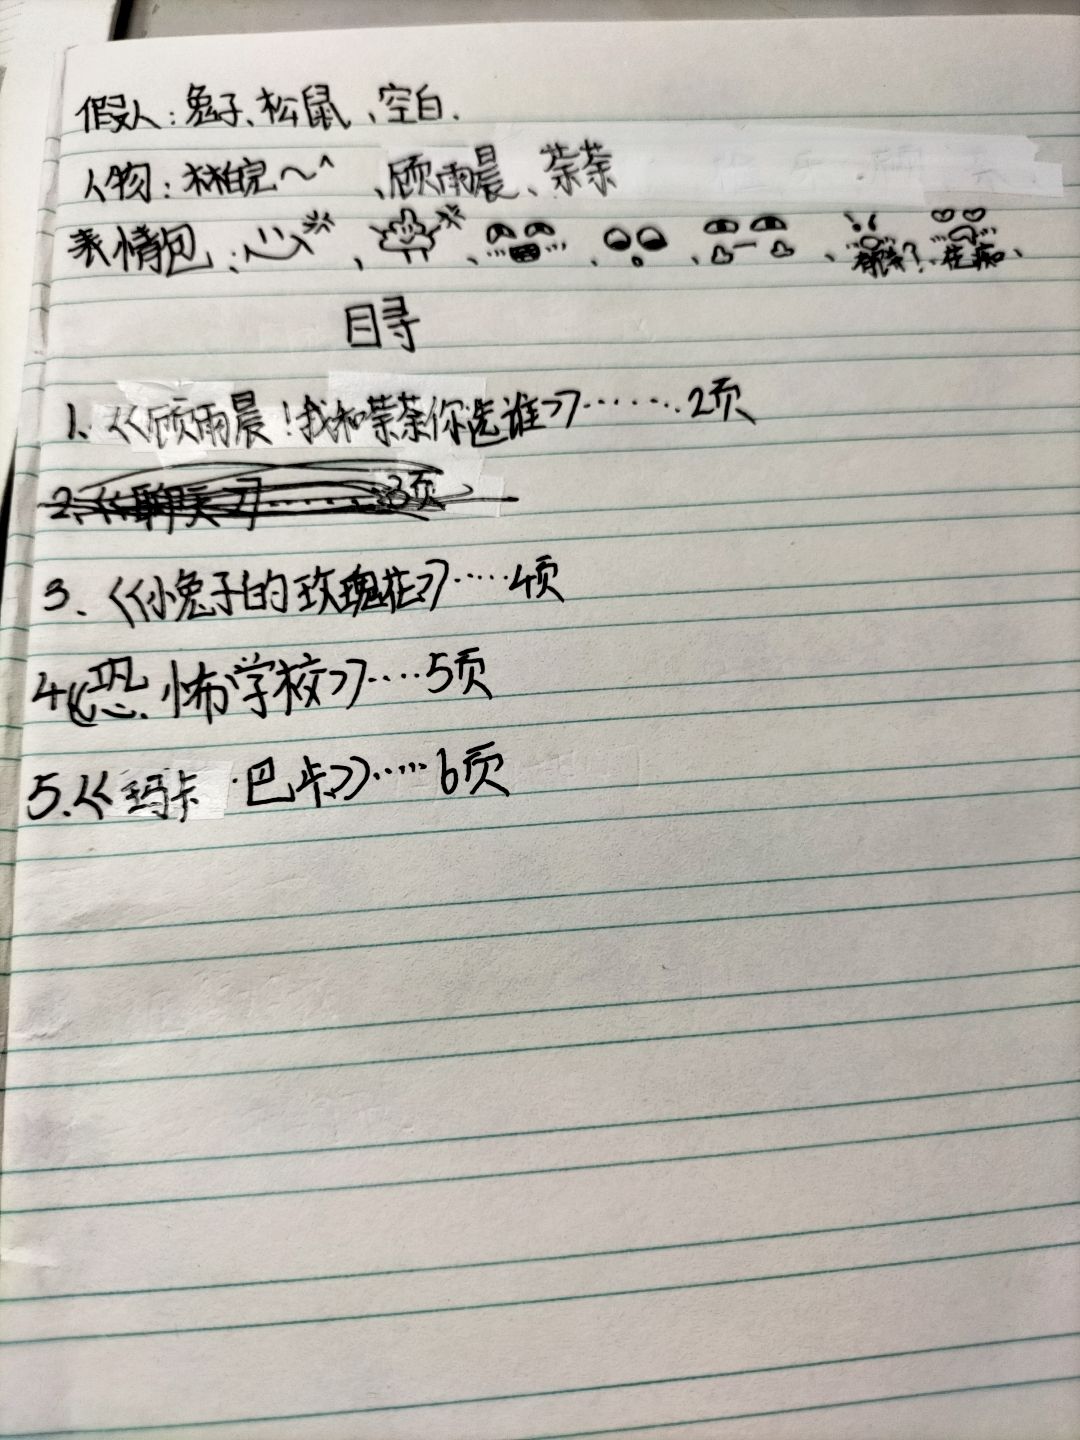 假人:兔子、松鼠、空白.
人物:林皖~^、顾雨晨、荼荼
表情包:、、、、、、花痴、
目寻
1、《顾雨晨!我和荼荼你选谁》……2页
2、《聊天》……3页
3、《小兔子的玫瑰花》……4页
4《恐怖学校》……5页
5.《玛卡·巴卡》……6页